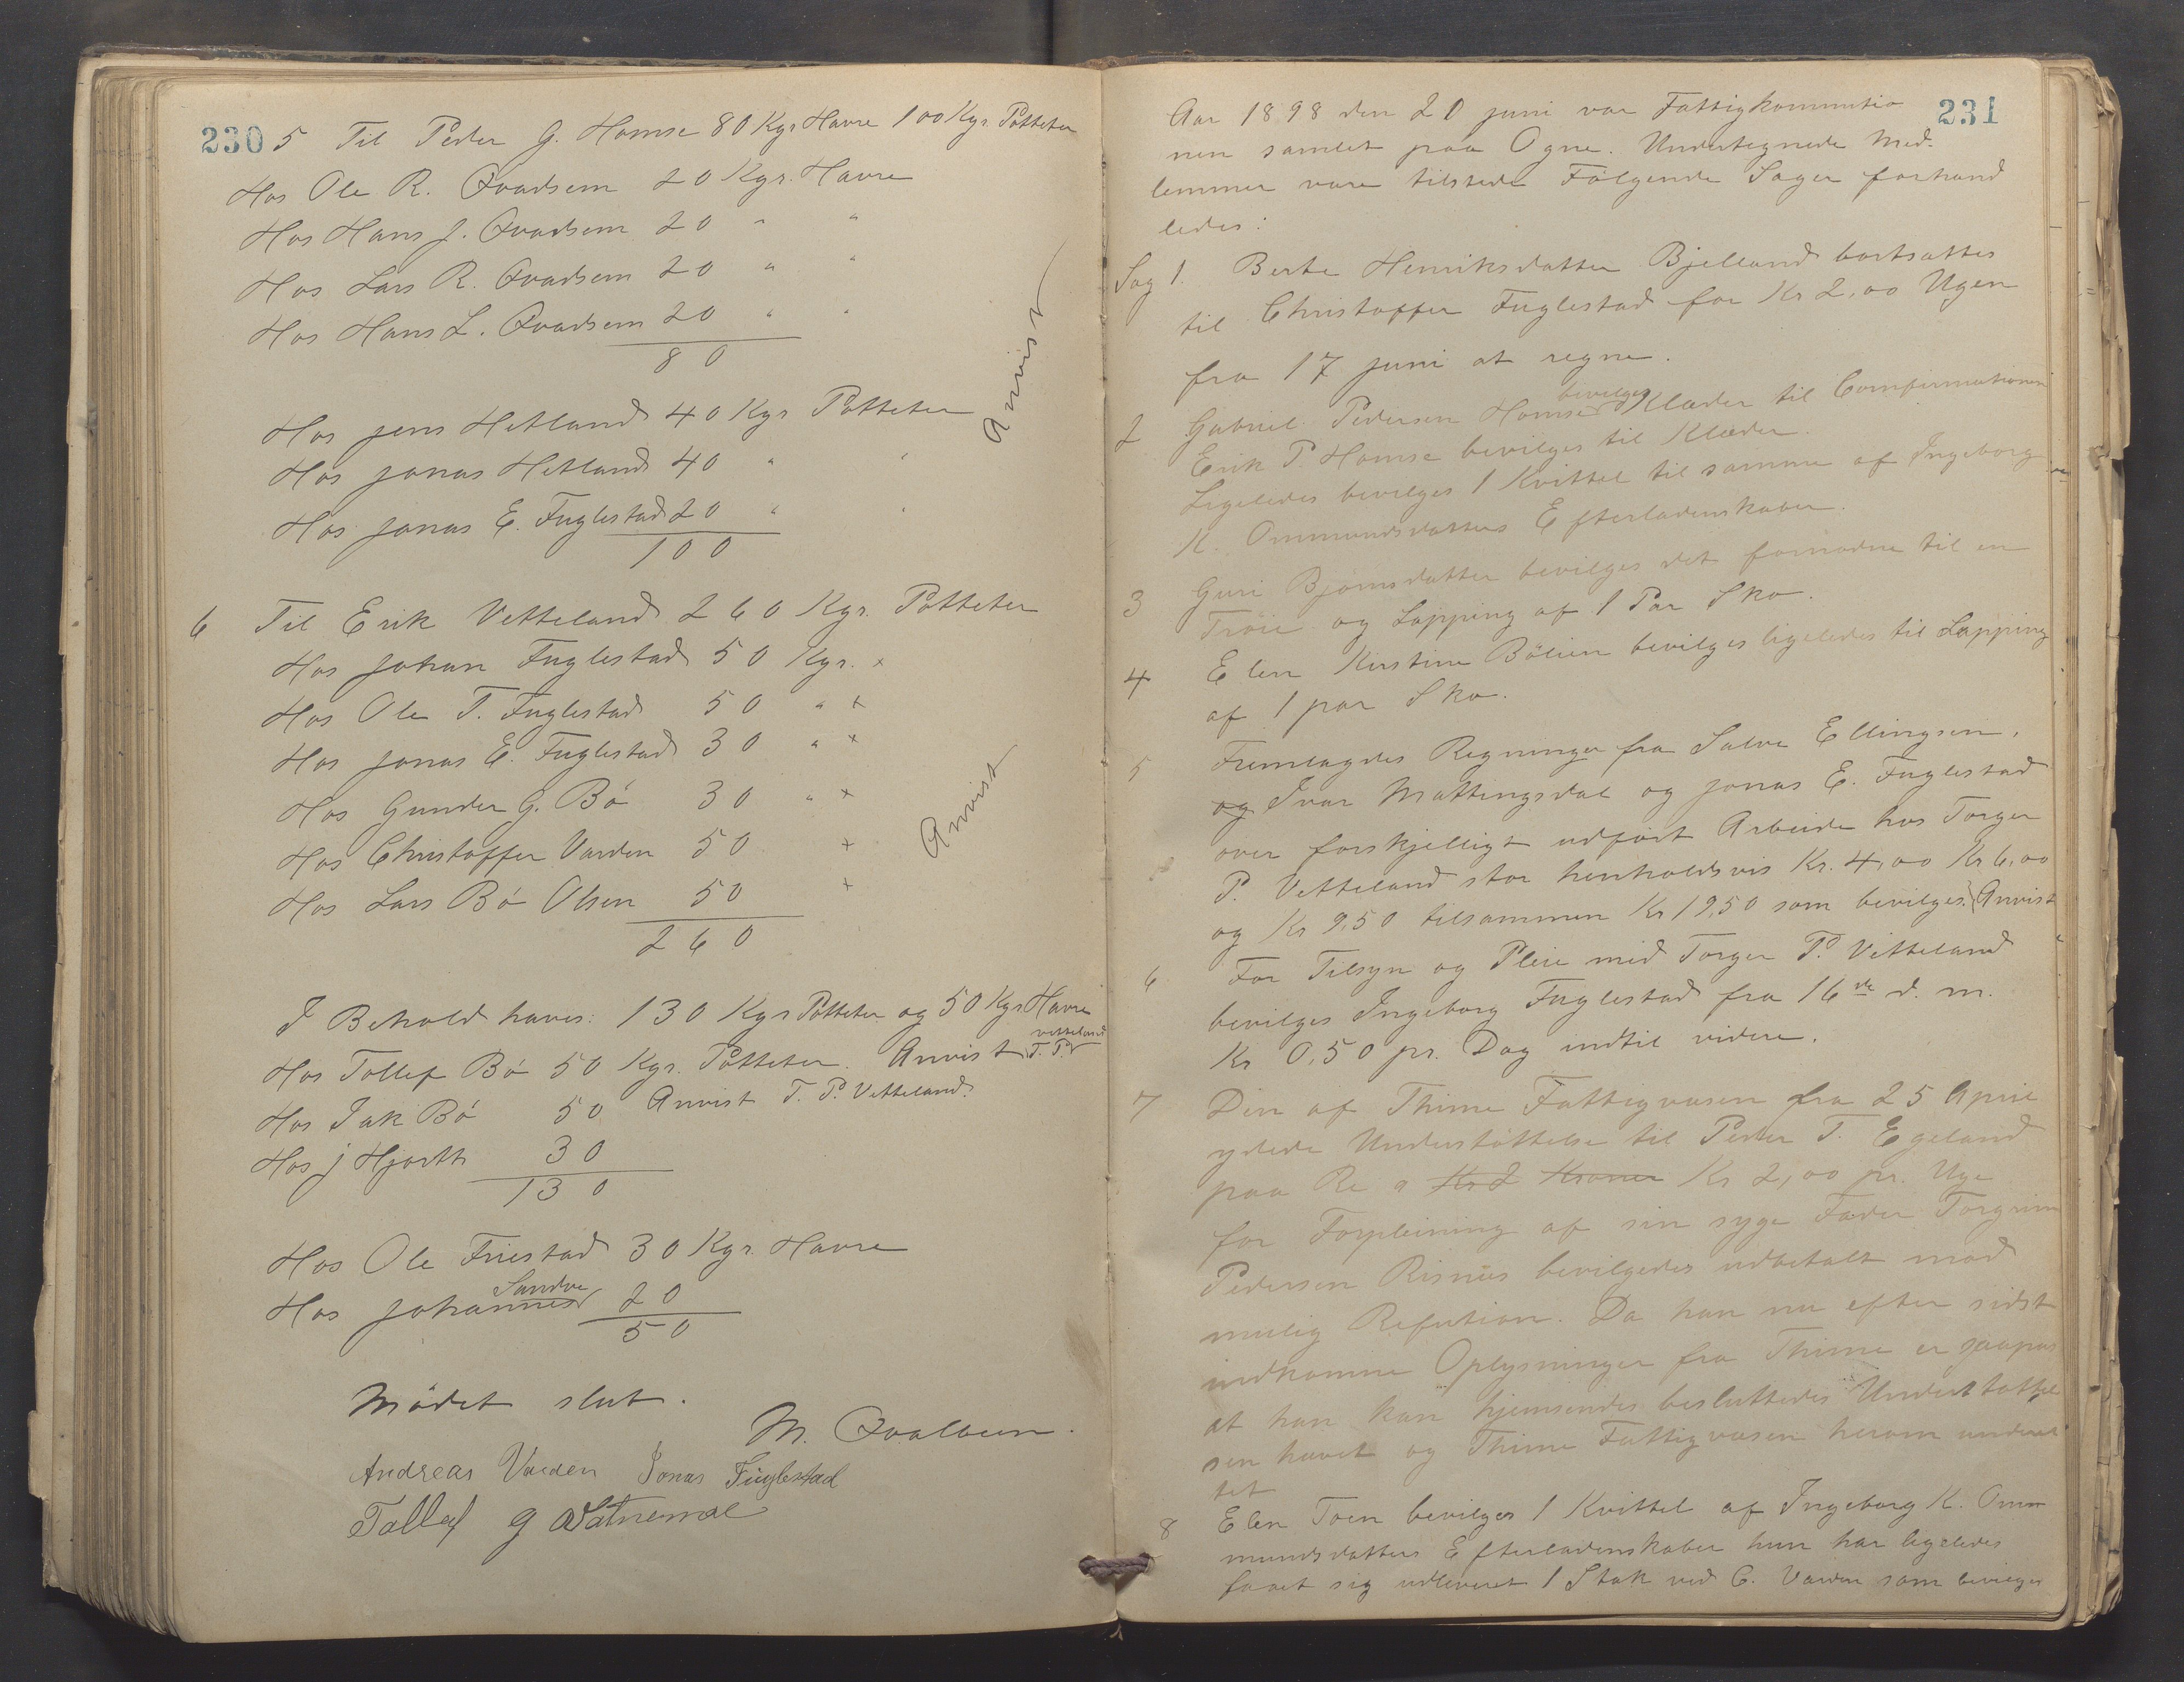 230
5 Til Peder G. Homse 80 Kgr Havre 100 Kgr. Potteter
Hos Ole R. Qvadsem 20 Kgr. Havre
Hos Hans J. Qvadsem 20 " "
Hos Lars R. Qvadsem 20 " "
Hos Hans L. Qvadsem 20 " "
80
Anvist
Hos Jens Hetland 40 Kgr Potteter
Hos Jonas Hetland 40 " "
Hos Jonas E. Fuglestad 20 " "
100
6 Til Erik Vetteland 260 Kgr. Potteter
Hos Johan Fuglestad 50 Kgr. x
Hos Ole T. Fuglestad 50 " x
Hos Jonas E. Fuglestad 30 " x
Hos Gunder G. Bö 30 " x
Hos Christoffer Varden 50 x
Hos Lars Bö Olsen 50 x
260
Anvist
I Behold haves: 130 Kgr Potteter og 50 Kgr Havre
Hos Tollef Bö 50 Kgr. Potteter. Anvist T. P. Vetteland
Hos Isak Bö 50 Anvist T. P. Vetteland.
Hos J Hjorth 30
130
Hos Ole Friestad 30 Kgr. Havre
Hos Johannes Sandve 20
50
Mödet slut.
M. Qvalbein.
Andreas Varden Jonas Fuglestad
Tollef G Watnemoe
231
Aar 1898 den 20 juni var Fattigkommitio
nen samlet paa Ogne. Undertegnede Med-
lemmer vare tilstede Følgende Sager forhand
ledes:
Sag 1. Berte Henriksdatter Bjelland bortsattes
til Christoffer Fuglestad for Kr 2,00 Ugen
fra 17 juni at regne.
2 Gabriel Pedersen Homse bevilges Klæder til Comfirmationen
Erik P. Homse bevilges til Klæder.
Ligeledes bevilges 1 Kvittel til samme af Ingeborg
K. Ommundsdatters Efterladenskaber.
3 Guri Bjørnsdatter bevilges det fornødne til en
Trøie og Lapping af 1 Par Sko.
4 Elen Kirstine Bölien bevilges ligeledes til Lapping
af 1 par Sko.
5 Fremlagdes Regninger fra Salve Ellingsen,
og Ivar Mattingsdal og Jonas E. Fuglestad
over forskjelligt udført Arbeide hos Torger
P. Vetteland stor henholdsvis Kr. 4,00 Kr 6,00
og Kr 9,50 tilsammen Kr 19,50 som bevilges. Anvist
6 For Tilsyn og Pleie med Torger P. Vetteland
bevilges Ingeborg Fuglestad fra 16de d. m.
Kr 0,50 pr. Dag indtil videre.
7 Den af Thime Fattigvæsen fra 25 April
ydede Understøttelse til Peder T. Egeland
paa Re a Kr 2 Kroner Kr 2,00 pr. Uge
for Forpleining af sin syge Fader Torgrim
Pedersen Risnes bevilgedes udbetalt mod
mulig Refution. Da han nu efter sidst
indkomne Oplysninger fra Thime er saapas
at han kan hjemsendes besluttedes Understøttel
sen hævet og Thime Fattigvæsen herom underret
tet
8 Elen Toen bevilges 1 Kvittel af Ingeborg K. Om
mundsdatters Efterladenskaber hun har ligeledes
faaet sig udleveret 1 Stak ved C. Varden som bevilges